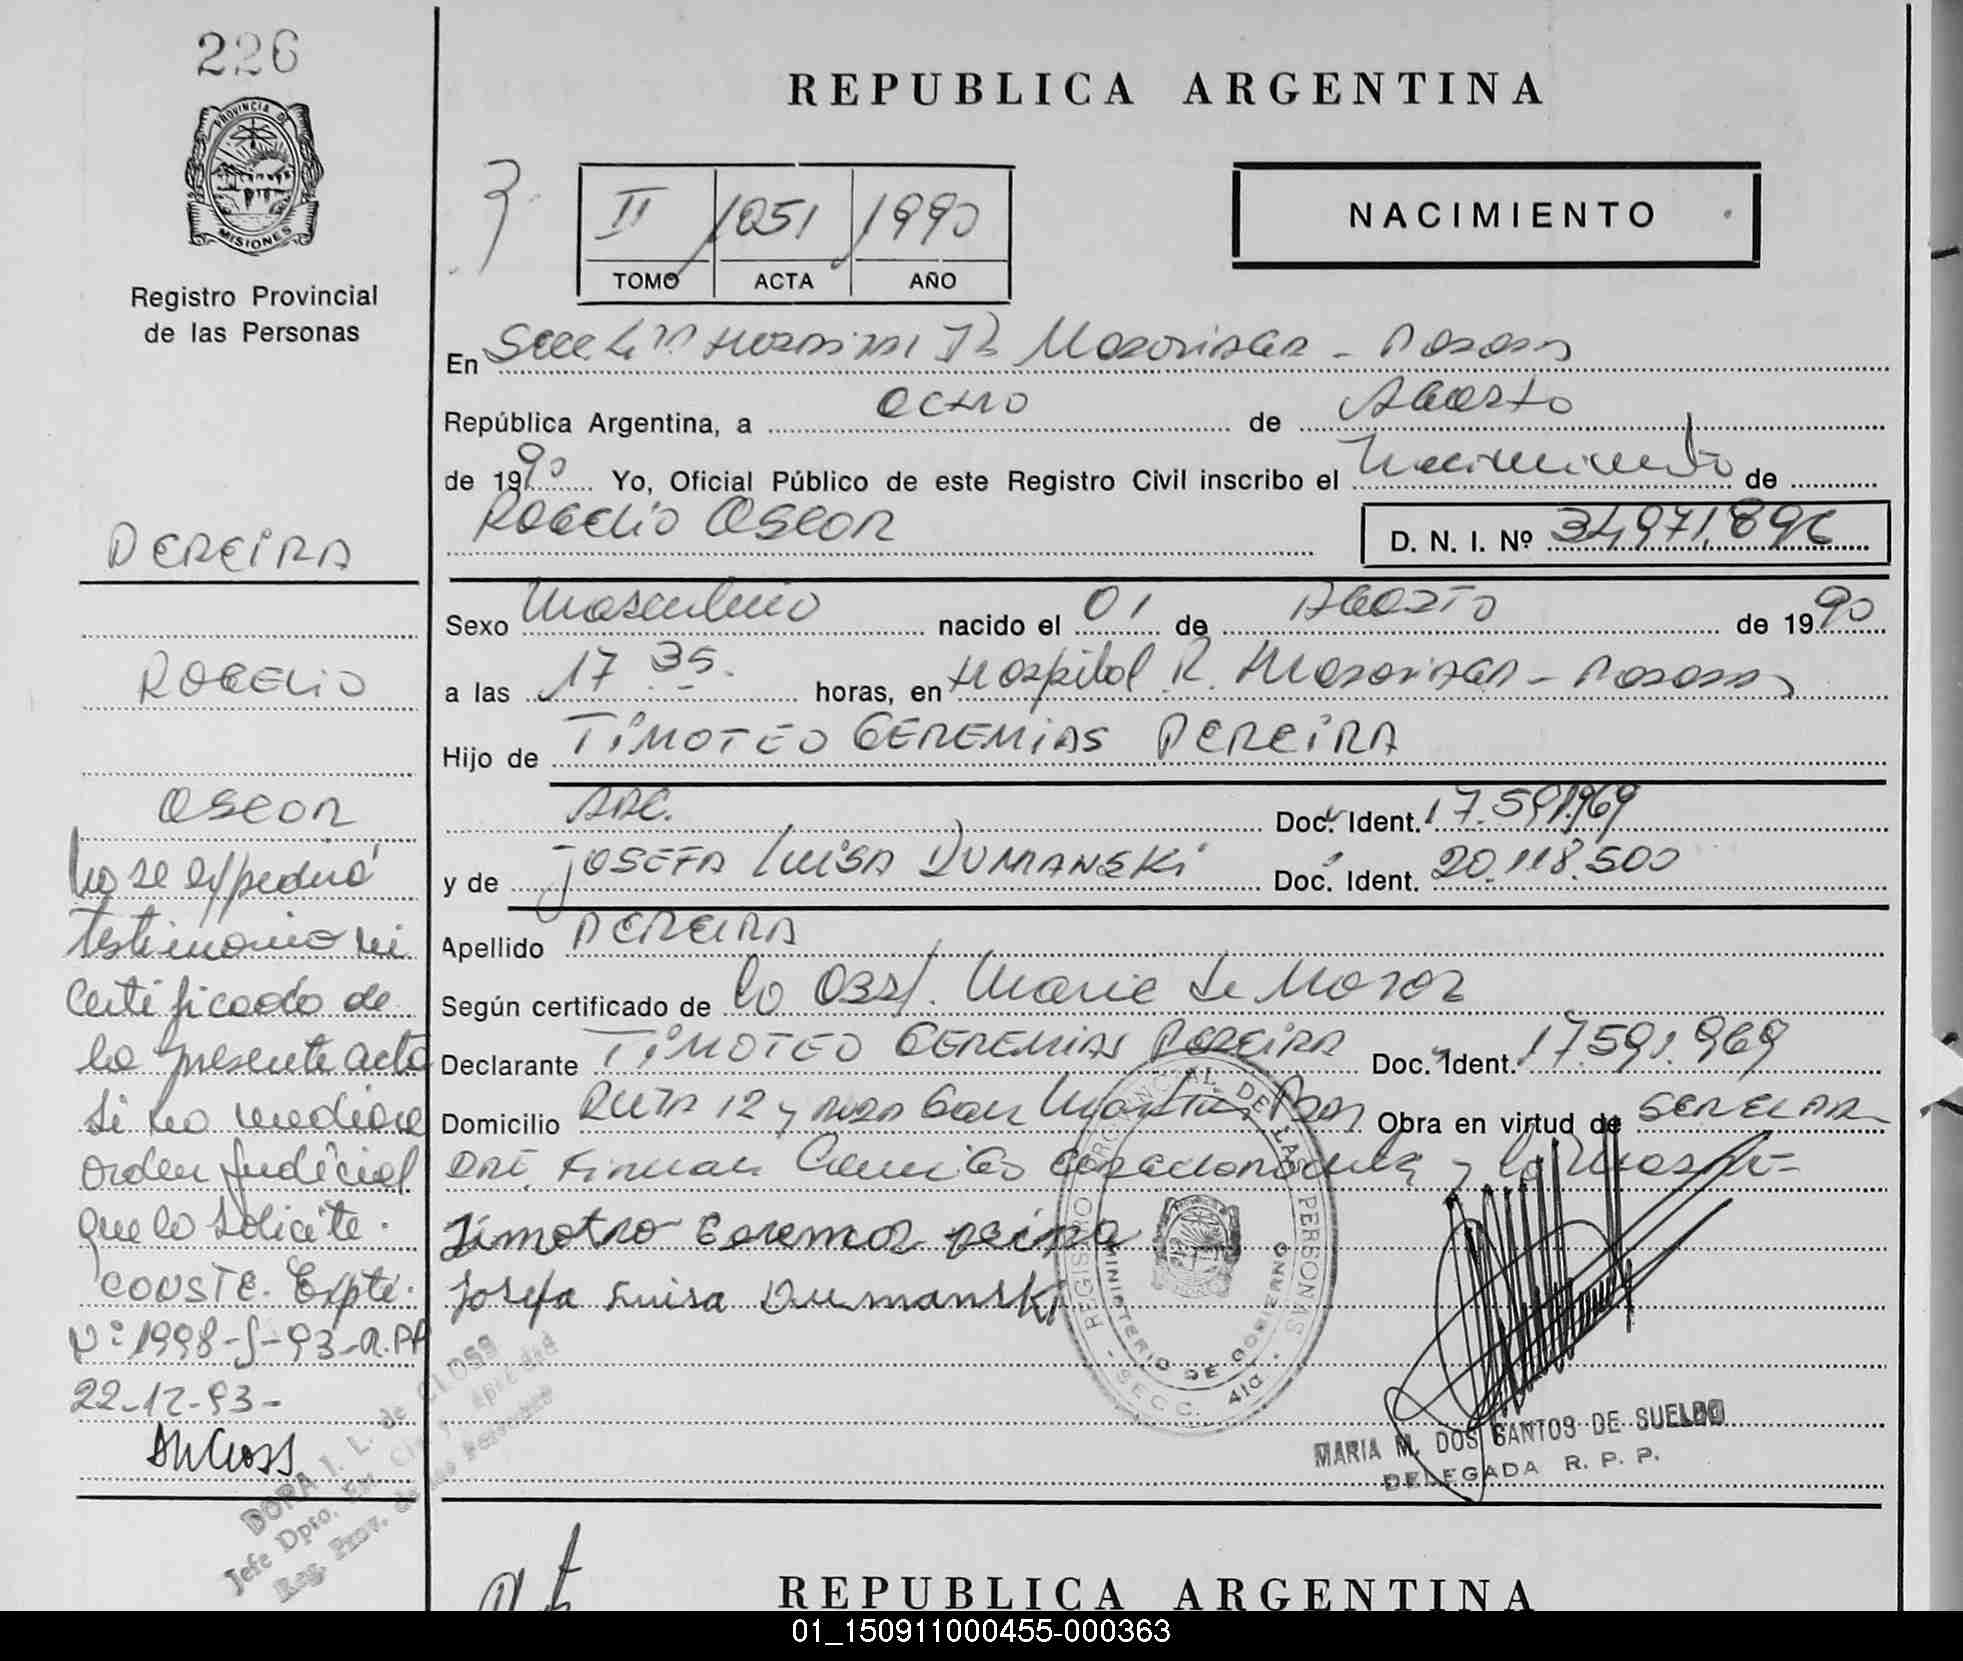 226
PROVINCIA DE
MISIONES
Registro Provincial
de las Personas
REPUBLICA ARGENTINA
II 1051 1990
TOMO ACTA AÑO
NACIMIENTO
En
República Argentina, a ocho de Agosto
de 1990 Yo, Oficial Público de este Registro Civil inscribo el Nacimiento de
ROGELIO OSCAR
D. N. I. Nº 34,971,896
PEREIRA
ROGELIO
OSCAR
Sexo Masculino nacido el 01 de AGOSTO de 1990
a las 17 35. horas, en Hospital R.
Hijo de TIMOTEO GEREMIAS PEREIRA
ARG. Doc. Ident. 17.591.969
y de JOSEFA LUISA DUMANSKI Doc. Ident. 20.118.500
Apellido PEREIRA
Según certificado de la Obst. Maria de
Declarante TIMOTEO GEREMIAS PEREIRA Doc. Ident. 17.591.969
Domicilio RUTA 12 y San Martin Obra en virtud de SER DECLAR
ANTE. Firman y la
Timoteo Geremias
Josefa Luisa Dumanski
REGISTRO PROVINCIAL DE LAS PERSONAS
MINISTERIO DE GOBIERNO
SECC.
MARIA M. DOS SANTOS DE SUELDO
DELEGADA R. P. P.
No se expedirá
testimonio ni
certificado de
la presente acta
si no mediare
orden judicial
que lo solicite.
CONSTE. Expte.
Nº 1998-S-93-R.PP
22-12-93-
DORA I. L. de CLOSS
Jefe Dpto.
Reg. Prov. de las Personas
REPUBLICA ARGENTINA
01_150911000455-000363